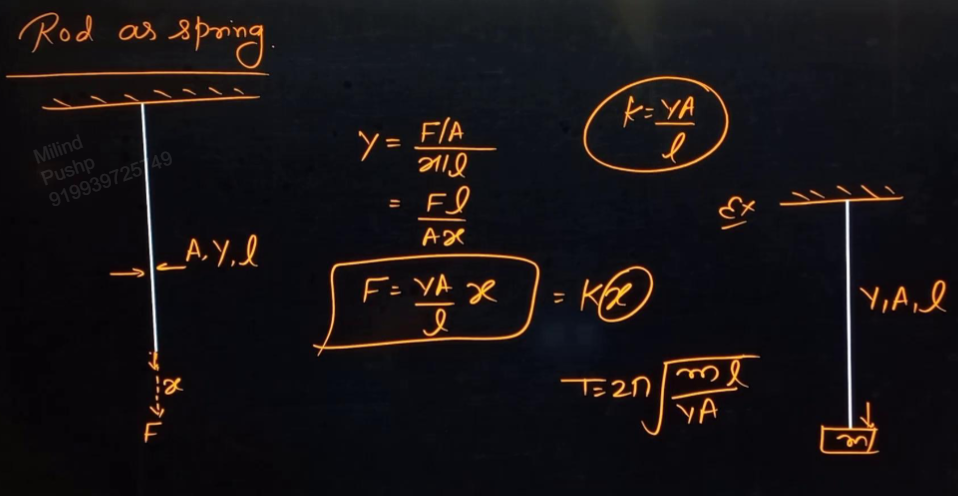 Rod as spring.
Milind
Pushp
919939725749
A, Y, l
x
F
Y = F/A / x/l
= Fl / Ax
F = YA/l x = Kx
K = YA/l
Ex
Y, A, l
m
T = 2π√(ml/YA)